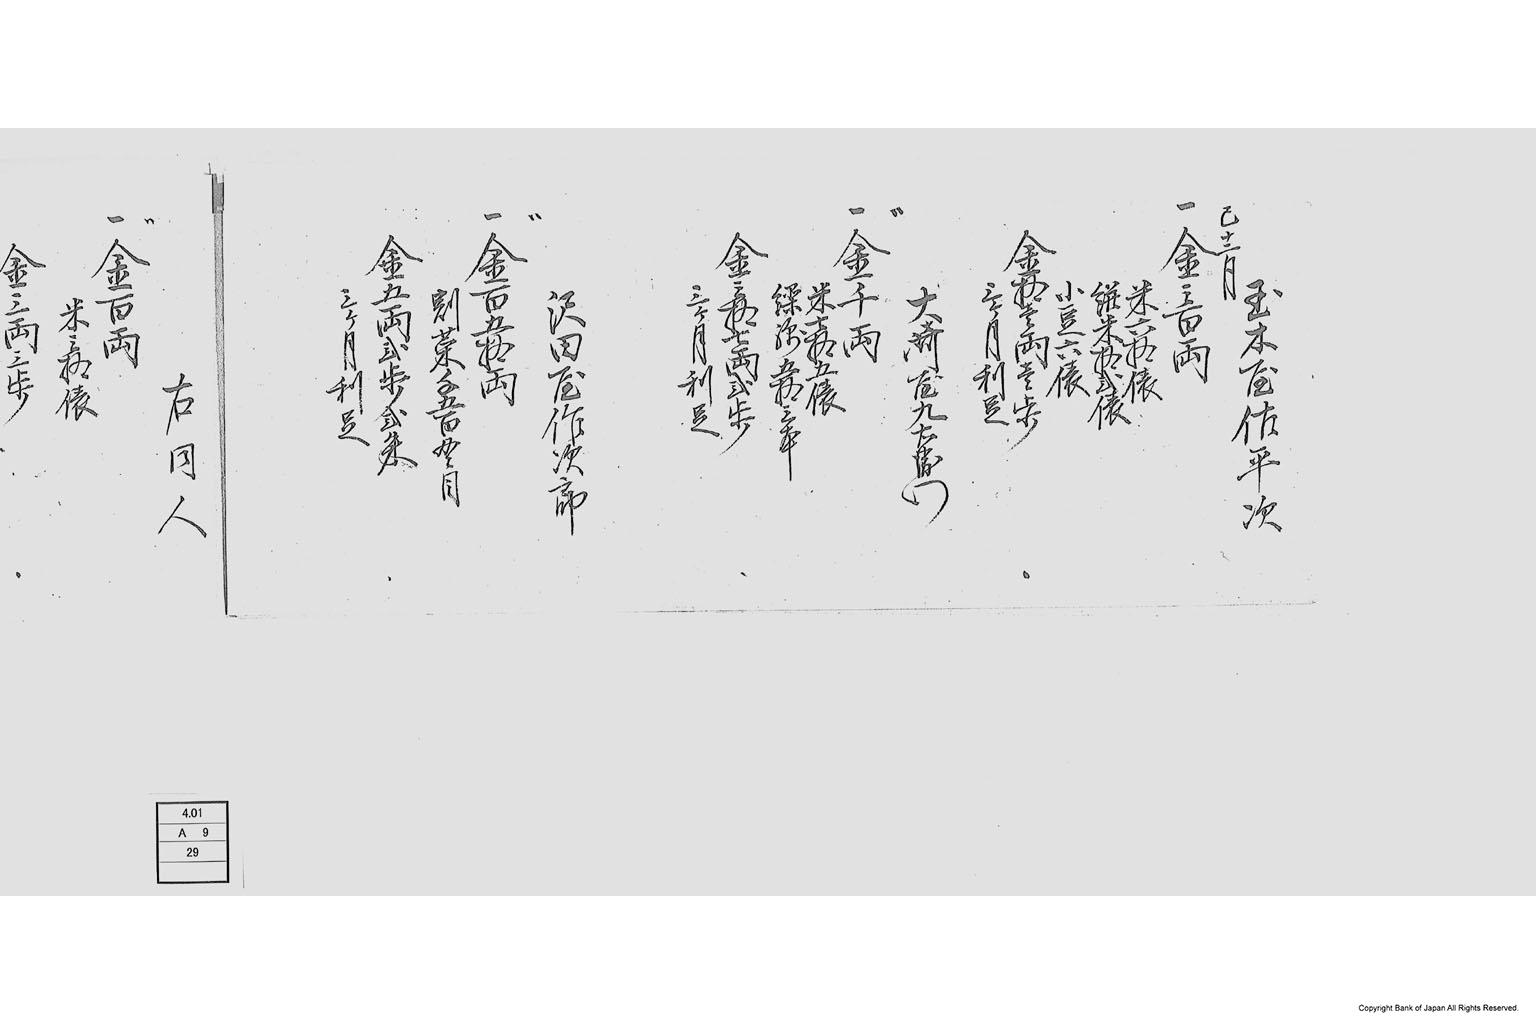 玉木屋佐平次
巳十二月
一金三百両
米六拾俵
餅米拾弐俵
小豆六俵
金拾壱両壱歩
三ヶ月利足
大濱屋九右衛門
〃
一金千両
米弐拾五俵
繰綿五拾三本
金三拾七両弐歩
三ヶ月利足
沢田屋作次郎
〃
一金百五拾両
割葉千五百
金五両弐歩弐朱
三ヶ月利足
右同人
〃
一金百両
米三拾俵
金三両三歩
4.01
A 9
29
Copyright Bank of Japan All Rights Reserved.